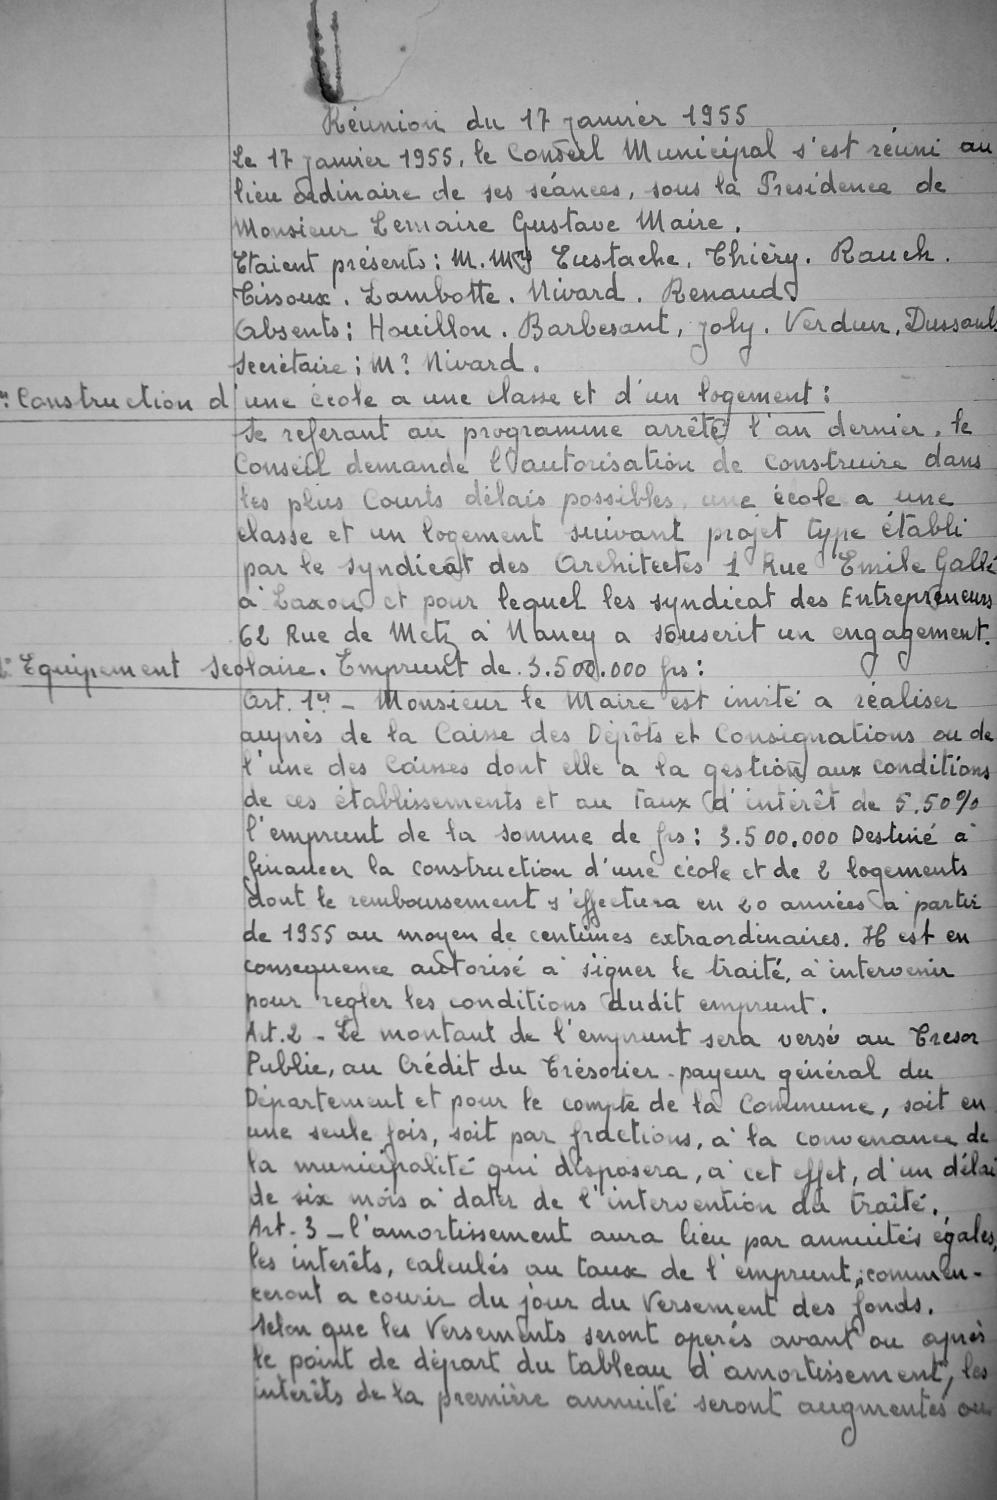 Réunion du 17 janvier 1955
Le 17 janvier 1955, le Conseil Municipal s'est réuni au
lieu ordinaire de ses séances, sous la Presidence de
Monsieur Lemaire Gustave Maire.
Etaient présents : M.M. Eustache. Thiéry. Rauch.
Tissoux. Lambotte. Nivard. Renaud
Absents : Houillon. Barbesant, Joly. Verdun. Dussaul
Secrétaire : Mr Nivard.
Construction d'une école a une classe et d'un logement :
Se referant au programme arrêté l'an dernier, le
Conseil demande l'autorisation de construire dans
les plus Courts délais possibles, une école a une
classe et un logement suivant projet type établi
par le syndicat des Architectes 1 Rue Emile Gallé
à Laxou et pour lequel les syndicat des Entrepreneurs
62 Rue de Metz à Nancy a souscrit un engagement.
2° Equipement Scolaire. Emprunt de 3.500.000 frs :
Art. 1er - Monsieur le Maire est invité a réaliser
auprès de la Caisse des Dépôts et Consignations ou de
l'une des Caisses dont elle a la gestion aux conditions
de ces établissements et au Taux d'intérêt de 5.50%
l'emprunt de la somme de frs : 3.500.000 Destiné à
financer la construction d'une école et de 2 logements
dont le remboursement s'effectura en 20 années à partir
de 1955 au moyen de centimes extraordinaires. Il est en
consequence autorisé à signer le traité, à intervenir
pour regler les conditions dudit emprunt.
Art. 2 - Le montant de l'emprunt sera versé au Tresor
Public, au Crédit du Trésorier-payeur général du
Département et pour le compte de la Commune, soit en
une seule fois, soit par fractions, à la convenance de
la municipalité qui disposera, à cet effet, d'un délai
de six mois à dater de l'intervention du traité.
Art. 3 - l'amortissement aura lieu par annuités égales,
les interêts, calculés au taux de l'emprunt, commen-
ceront a courir du jour du Versement des fonds.
Selon que les Versements seront operés avant ou après
le point de départ du tableau d'amortissement, les
interêts de la première annuité seront augmentés ou